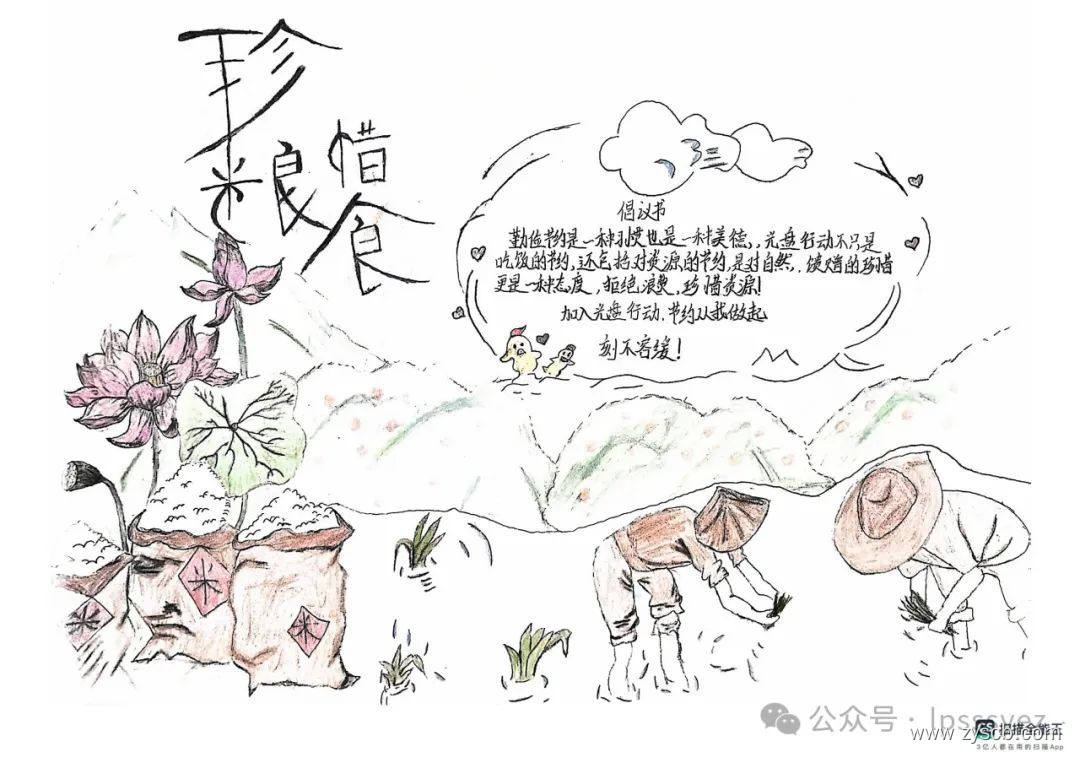 珍惜
粮食
倡议书
勤俭节约是一种习惯也是一种美德，光盘行动不只是
吃饭的节约，还包括对资源的节约，是对自然、馈赠的珍惜
更是一种态度，拒绝浪费，珍惜资源！
加入光盘行动，节约从我做起
刻不容缓！
米
米
米
公众号 · lpsssyez
www.zyscb.com
CS 扫描全能王
3亿人都在用的扫描App